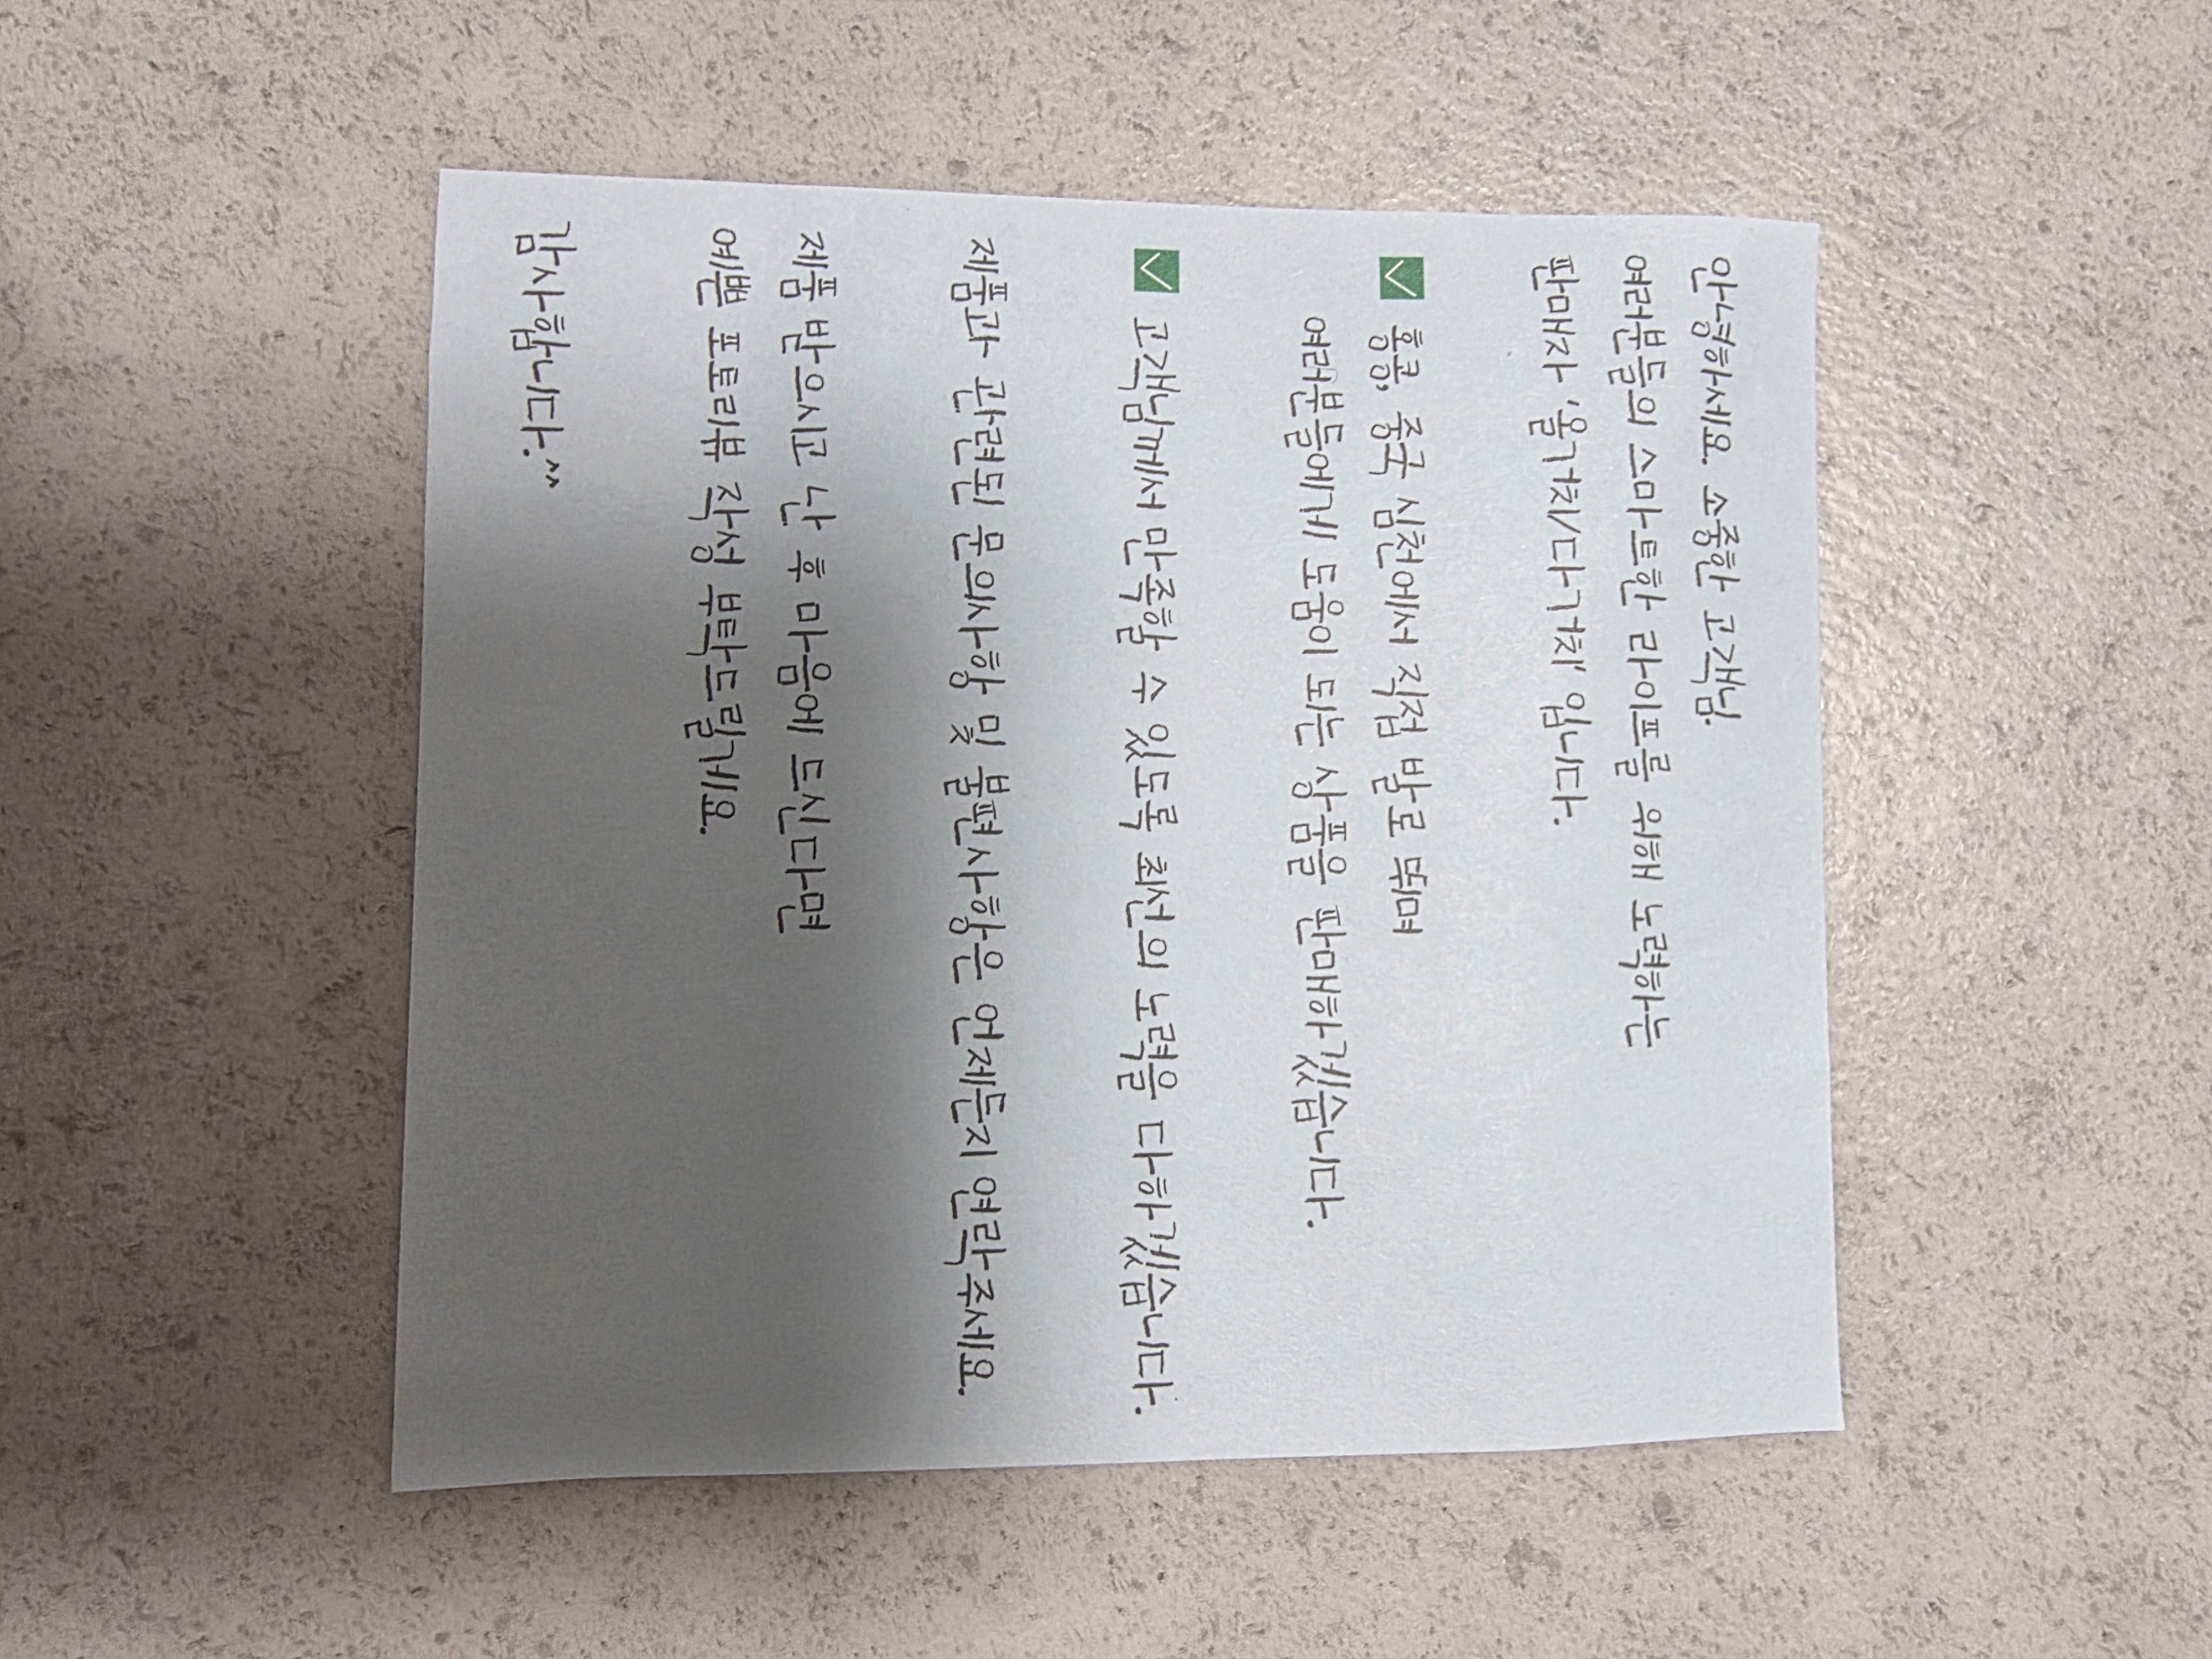 안녕하세요. 소중한 고객님.
여러분들의 스마트한 라이프를 위해 노력하는
판매자 '올가치/다가치' 입니다.
✅ 홍콩, 중국 심천에서 직접 발로 뛰며
여러분들에게 도움이 되는 상품을 판매하겠습니다.
✅ 고객님께서 만족할 수 있도록 최선의 노력을 다하겠습니다.
제품과 관련된 문의사항 및 불편사항은 언제든지 연락주세요.
제품 받으시고 난 후 마음에 드신다면
예쁜 포토리뷰 작성 부탁드릴게요.
감사합니다:^^